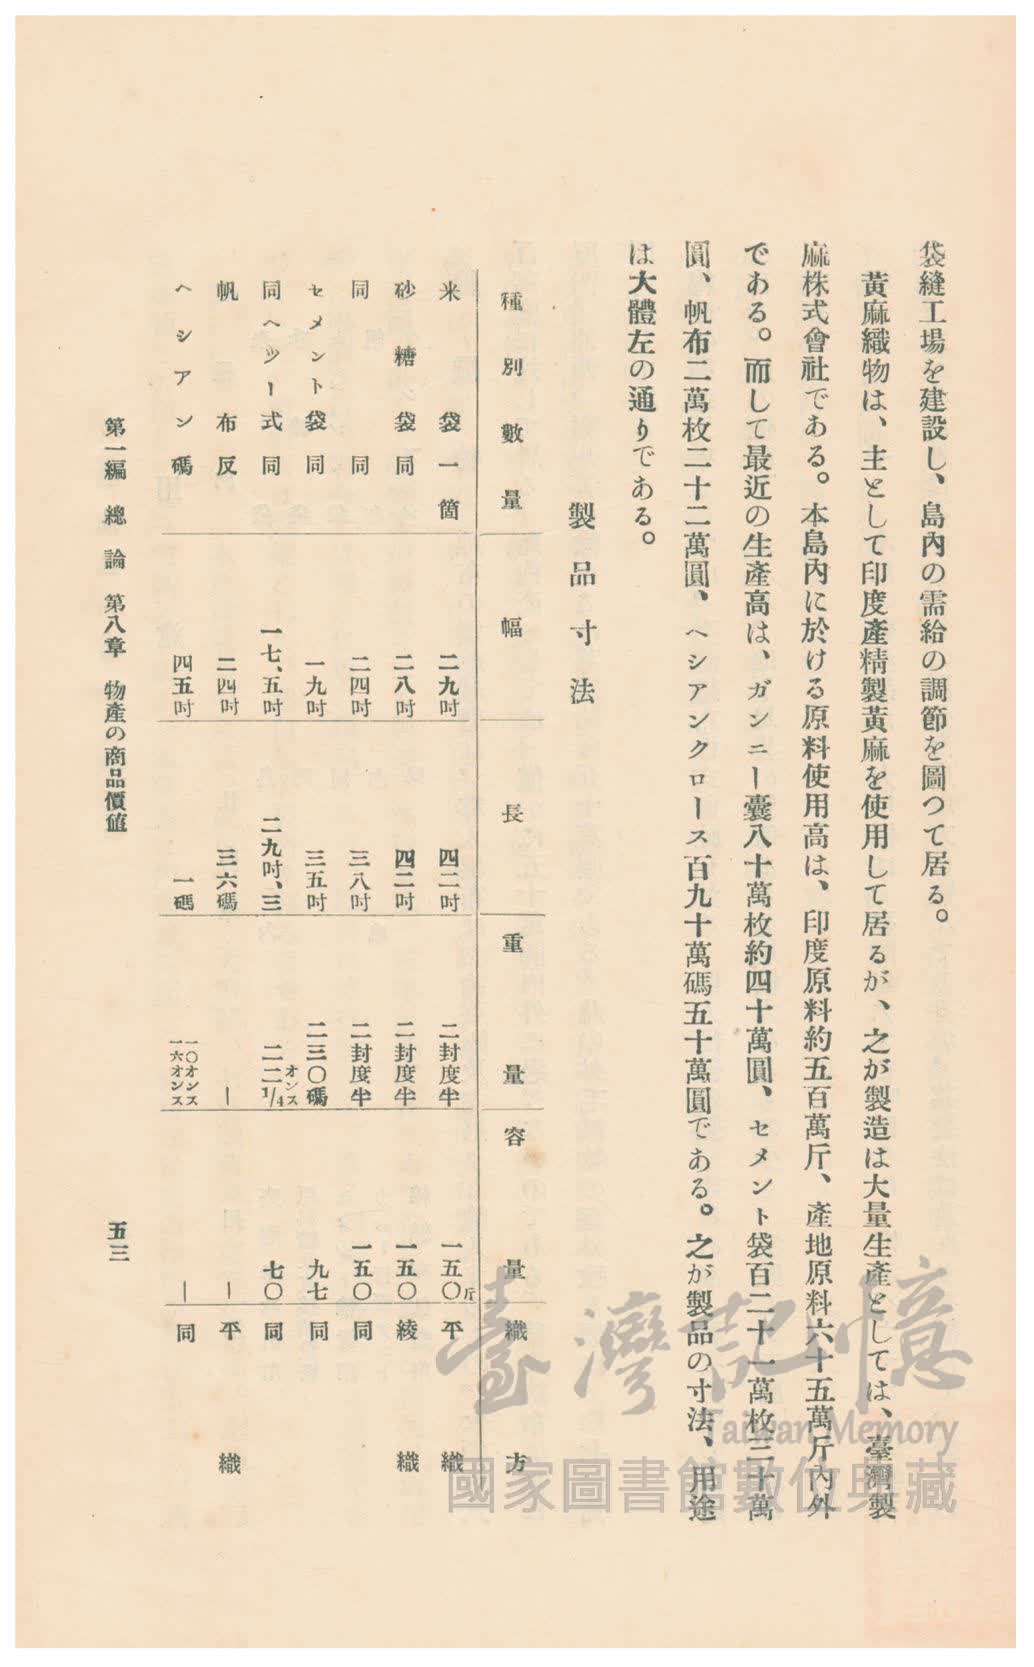 袋縫工場を建設し、島內の需給の調節を圖つて居る。
黃麻織物は、主として印度產精製黃麻を使用して居るが、之が製造は大量生產としては、臺灣製
麻株式會社である。本島內に於ける原料使用高は、印度原料約五百萬斤、產地原料六十五萬斤內外
である。而して最近の生產高は、ガンニー囊八十萬枚約四十萬圓、セメント袋百二十一萬枚三十萬
圓、帆布二萬枚二十二萬圓、ヘシアンクロース百九十萬碼五十萬圓である。之が製品の寸法、用途
は大體左の通りである。
製品寸法
種別 數量 幅 長 重量 容量 織方
米袋 一箇 二九吋 四二吋 二封度半 一五〇斤 平織
砂糖袋 同 二八吋 四二吋 二封度半 一五〇 綾織
同 同 二四吋 三八吋 二封度半 一五〇 同
セメント袋 同 一九吋 三五吋 二三〇碼 九七 同
同ヘツー式 同 一七、五吋 二九吋、三 二二1/4オンス 七〇 同
帆布 反 二四吋 三六碼 ー ー 平織
ヘシアン 碼 四五吋 一碼 一〇オンス 一六オンス ー 同
第一編 總論 第八章 物產の商品價值
五三
臺灣記憶
Taiwan Memory
國家圖書館數位典藏